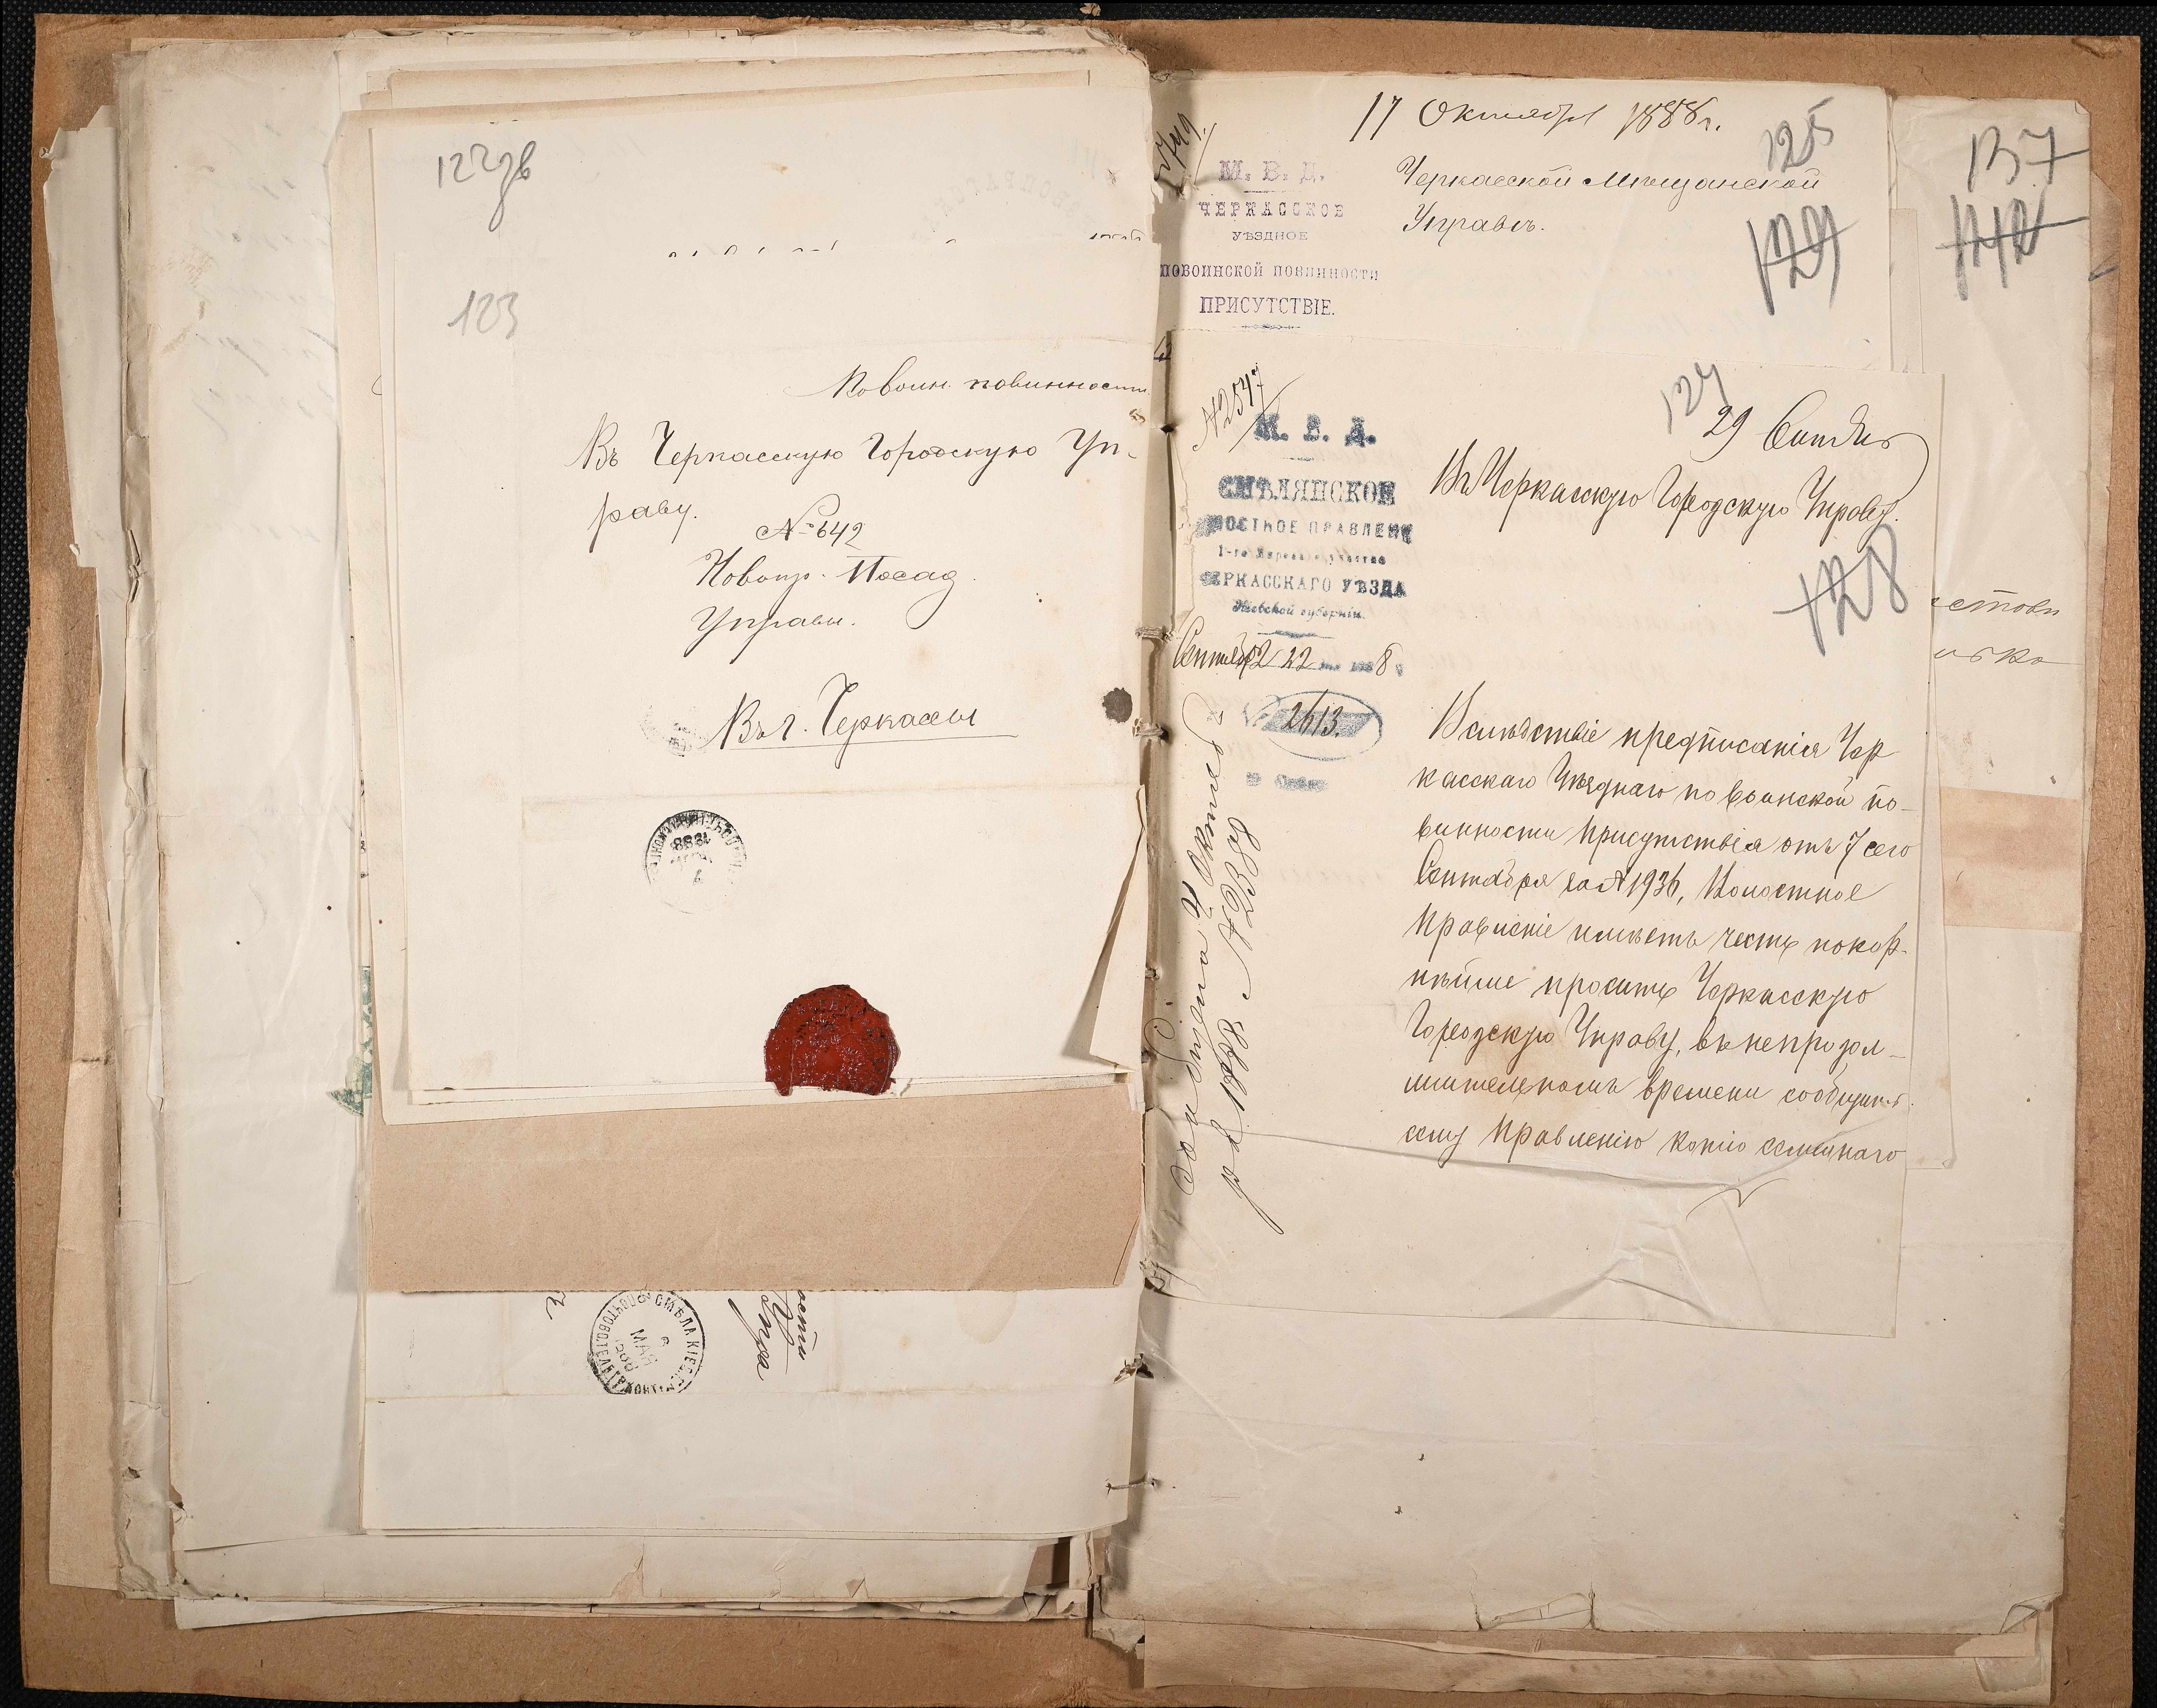 122зв
123
По воин. повинности
Въ Черкасскую Городскую Уп-
раву.
№ 642
Новогр. Посад.
Управы.
Въ г. Черкассы
1888
СМѢЛА КІЕВ.
6
МАЯ
1888
ости
17 Октября 1888 г.
125
М. В. Д.
ЧЕРКАССКОЕ
УѢЗДНОЕ
ПО ВОИНСКОЙ ПОВИННОСТИ
ПРИСУТСТВІЕ.
Черкасской Мѣщанской
Управѣ.
129
137
142
127
№ 2547
29 Сентбря
М. В. Д.
СМѢЛЯНСКОЕ
ВОЛОСТНОЕ ПРАВЛЕНІЕ
1-го Миров. участка
ЧЕРКАССКАГО УѢЗДА
Кіевской губерніи
Сентября 22 дня 1888 г.
№ 2613.
Въ Черкасскую Городскую Управу.
128
Вслѣдствіе предписанія Чер
касскаго Уѣзднаго по воинской по-
винности Присутствія отъ 7 сего
Сентября за № 1936, Волостное
Правленіе имѣетъ честь покор-
нѣйше просить Черкасскую
Городскую Управу, въ непродол-
жительномъ времени сообщить
сему Правленію копію семейнаго
Сообщено 4 Октяб
ря 1888 г. № 2388